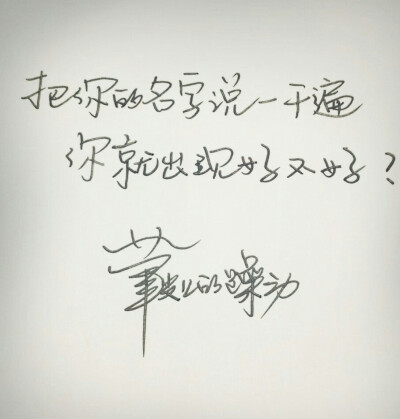 把你的名字说一千遍
你就出现好不好？
的躁动